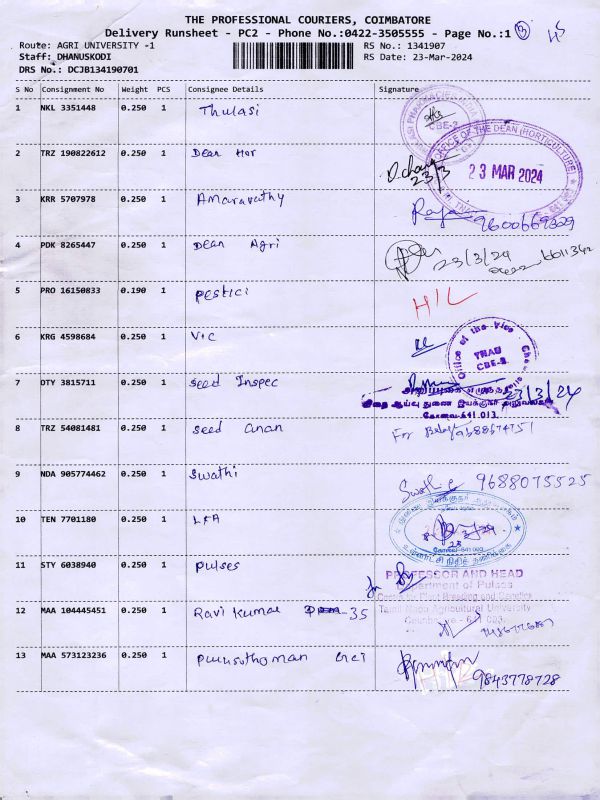 THE PROFESSIONAL COURIERS, COIMBATORE
Delivery Runsheet - PC2 - Phone No.:0422-3505555 - Page No.:1 3
Route: AGRI UNIVERSITY -1 RS No.: 1341907
Staff: DHANUSKODI RS Date: 23-Mar-2024
DRS No.: DCJB134190701
S No Consignment No Weight PCS Consignee Details Signature
1 NKL 3351448 0.250 1 Thulasi
CBE-2
OFFICE OF THE DEAN (HORTICULTURE)
2 TRZ 190822612 0.250 1 Dean Hor 23/3
23 MAR 2024
3 KRR 5707978 0.250 1 Amaravathy Raja 9600669329
4 PDK 8265447 0.250 1 Dean Agri 23/3/24
5 PRO 16150833 0.190 1 Pestici H/L
6 KRG 4598684 0.250 1 V.C
Office of the Vice
TNAU
CBE-3
7 DTY 3815711 0.250 1 Seed Inspec 23/3/24
கோவை-641 013.
8 TRZ 54081481 0.250 1 Seed
9 NDA 905774462 0.250 1 Swathi 9688075525
10 TEN 7701180 0.250 1 LFA
11 STY 6038940 0.250 1 pulses
PROFESSOR AND HEAD
Department of Pulses
Centre for Plant Breeding and Genetics
Tamil Nadu Agricultural University
Coimbatore - 641 003.
12 MAA 104445451 0.250 1 Ravi kumar 35
13 MAA 573123236 0.250 1 9843778728